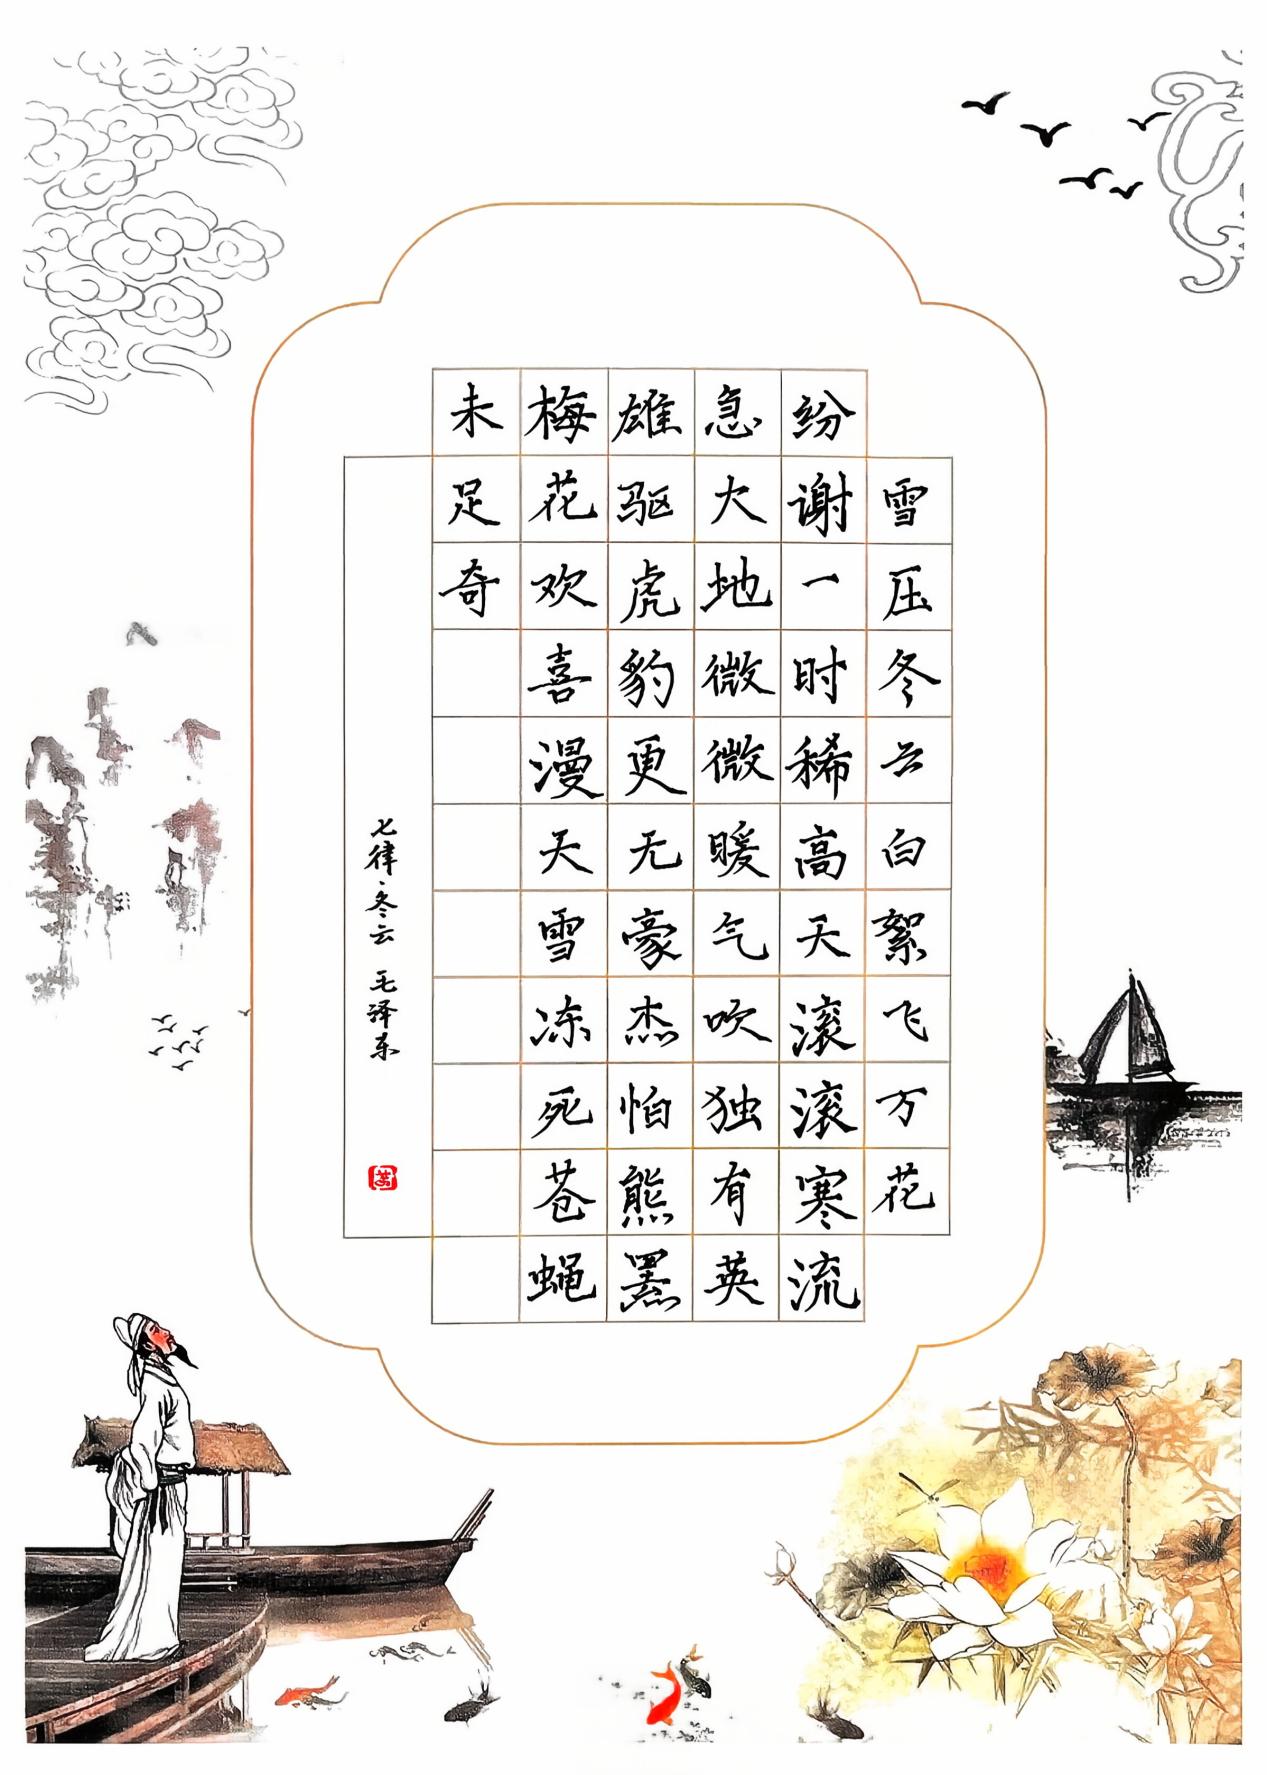 雪压冬云白絮飞万花
纷谢一时稀高天滚滚寒流
急大地微微暖气吹独有英
雄驱虎豹更无豪杰怕熊罴
梅花欢喜漫天雪冻死苍蝇
未足奇
七律·冬云 毛泽东